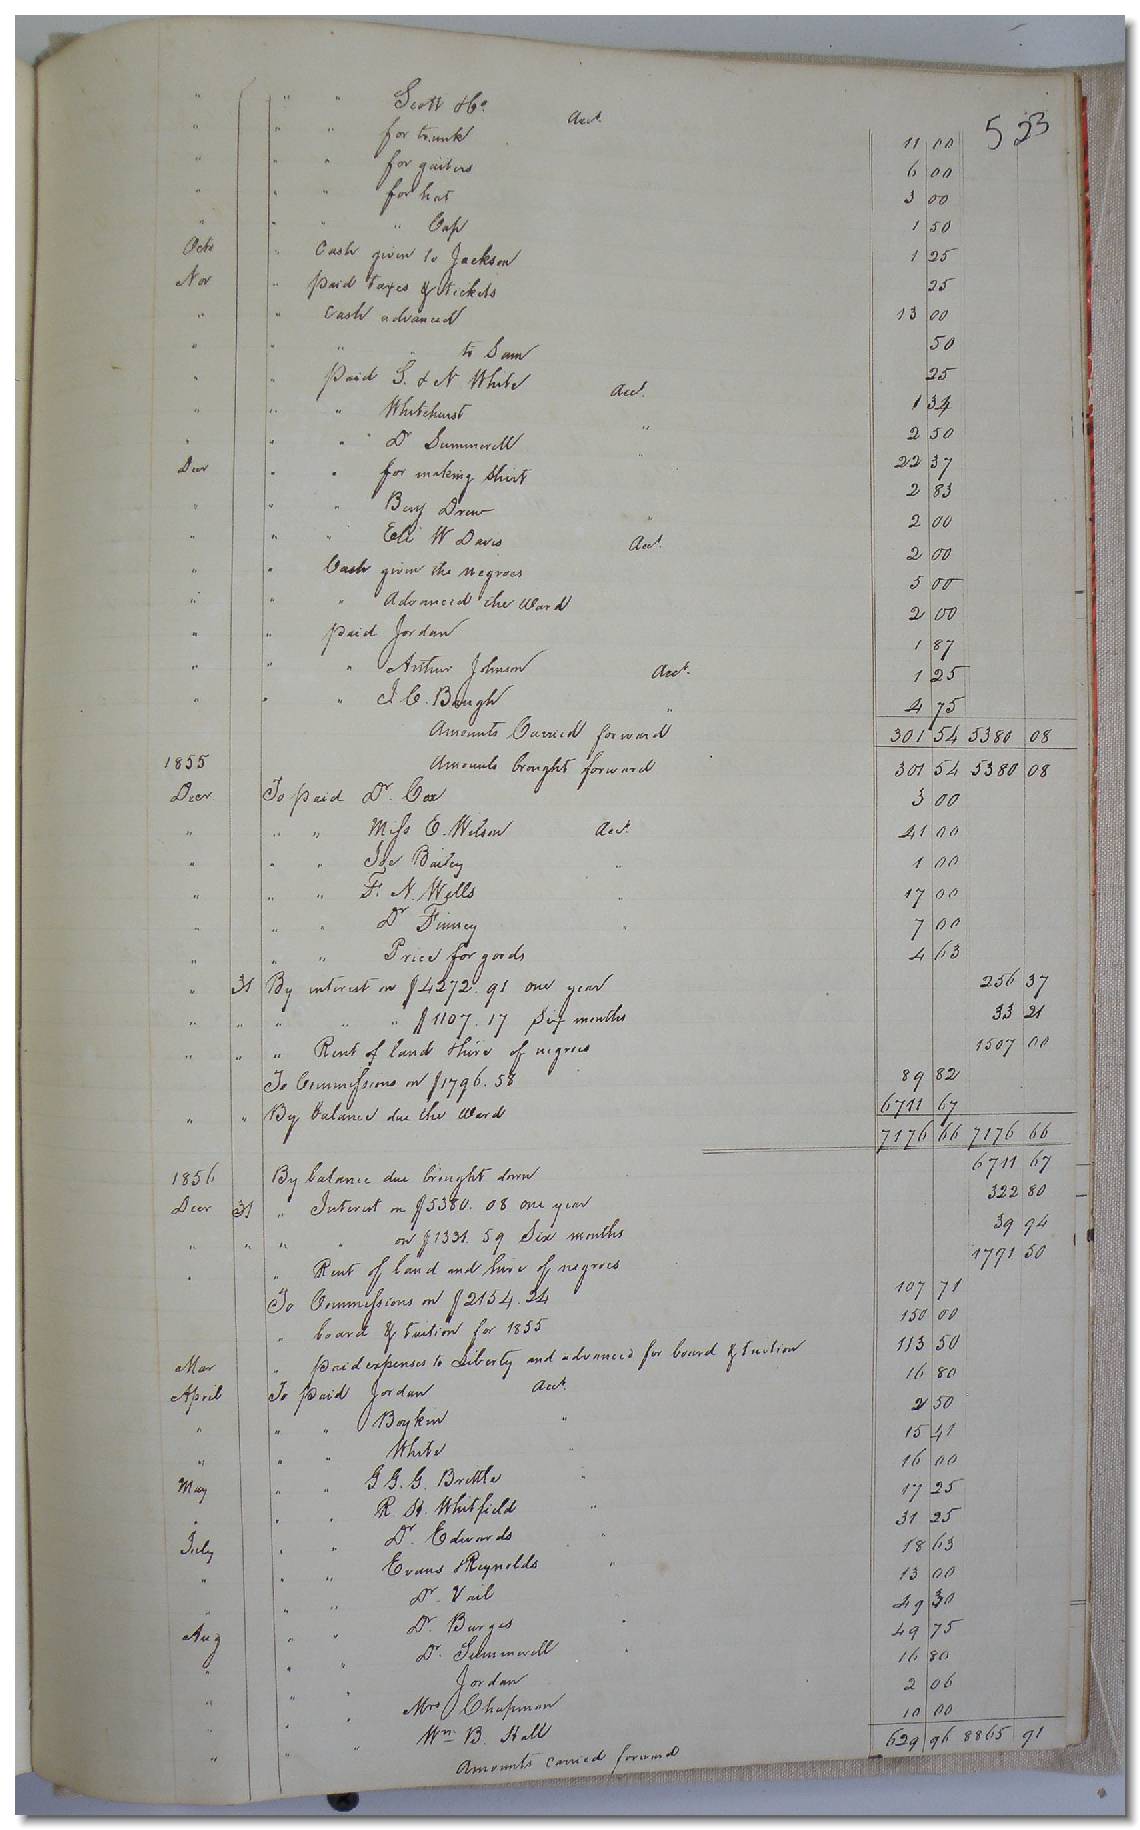 523
" " " Scott & Co. Acct. 11 00
" " " for trunk 6 00
" " " for gaiters 3 00
" " " for hat 1 50
" " " " Cap 1 25
Octo " Cash given to Jackson 25
Nov " paid taxes & tickets 13 00
" " Cash advanced 50
" " " " to Sam 25
" " Paid S. & N White Acct. 1 34
" " " Whitehurst " 2 50
" " " Dr Summerell " 22 37
Decr " " for making Shirt 2 83
" " " Benj Drew " 2 00
" " " Eli W Davis Acct. 2 00
" " Cash given the negroes 5 00
" " " Advanced the Ward 2 00
" " paid Jordan 1 87
" " " Arthur Johnson Acct. 1 25
" " " J. C. Baugh " 4 75
Amounts Carried forward 301 54 5380 08
1855 Amounts brought forward 301 54 5380 08
Decr To paid Dr. Cox 3 00
" " " Miss E. Wilson Acct. 41 00
" " " Joe Bailey " 1 00
" " " F. N. Wells " 17 00
" " " Dr Finney " 7 00
" " " Price for goods 4 63
" 31 By interest on $4272.91 one year 256 37
" " " " " $1107.17 Six months 33 21
" " " Rent of land & hire of negroes 1507 00
To Commissions on $1796.58 89 82
" " By balance due the Ward 6711 67
7176 66 7176 66
1856 By balance due brought down 6711 67
Decr 31 " Interest on $5380.08 one year 322 80
" " " " on $1331.59 Six months 39 94
" " Rent of land and hire of negroes 1791 50
To Commissions on $2154.24 107 71
" board & tuition for 1855 150 00
Mar " paid expenses to Liberty and advanced for board & tuition 113 50
April To paid Jordan Acct. 16 80
" " " Boykin " 2 50
" " " White " 15 41
May " " G. G. G. Brittle " 16 00
" " " R. H. Whitfield " 17 25
July " " Dr. Edwards " 31 25
" " " Evans & Reynolds " 18 63
" " " Dr. Vail 13 00
Aug " " Dr. Burges " 49 30
" " " Dr. Summerell " 49 75
" " " Jordan 16 80
" " " Mrs Chapman 2 06
" " " Wm. B. Hall 10 00
Amounts carried forward 629 96 8865 91